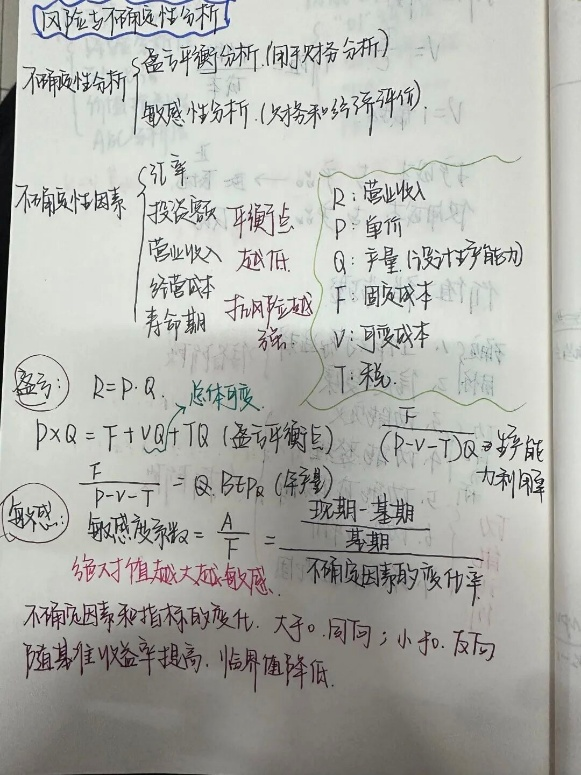 风险与不确定性分析
不确定性分析
盈亏平衡分析.(用于财务分析)
敏感性分析.(财务和经济评价).
不确定性因素
汇率
投资额
营业收入
经营成本
寿命期
平衡点
越低
抗风险越
强
R：营业收入
P：单价
Q：产量.(设计生产能力)
F：固定成本
V：可变成本
T：税.
盈亏： R=P·Q.
总体可变.
P×Q = F+VQ+TQ (盈亏平衡点)
F/(P-V-T)Q ⇒生产能力利用率
F/P-V-T = Q. BEPQ (保产量)
敏感： 敏感度系数 = A/F = 现期-基期/基期/不确定因素的变化率
绝对值越大越敏感.
不确定因素和指标的变化. 大于0.同向；小于0.反向
随基准收益率提高. 临界值降低.